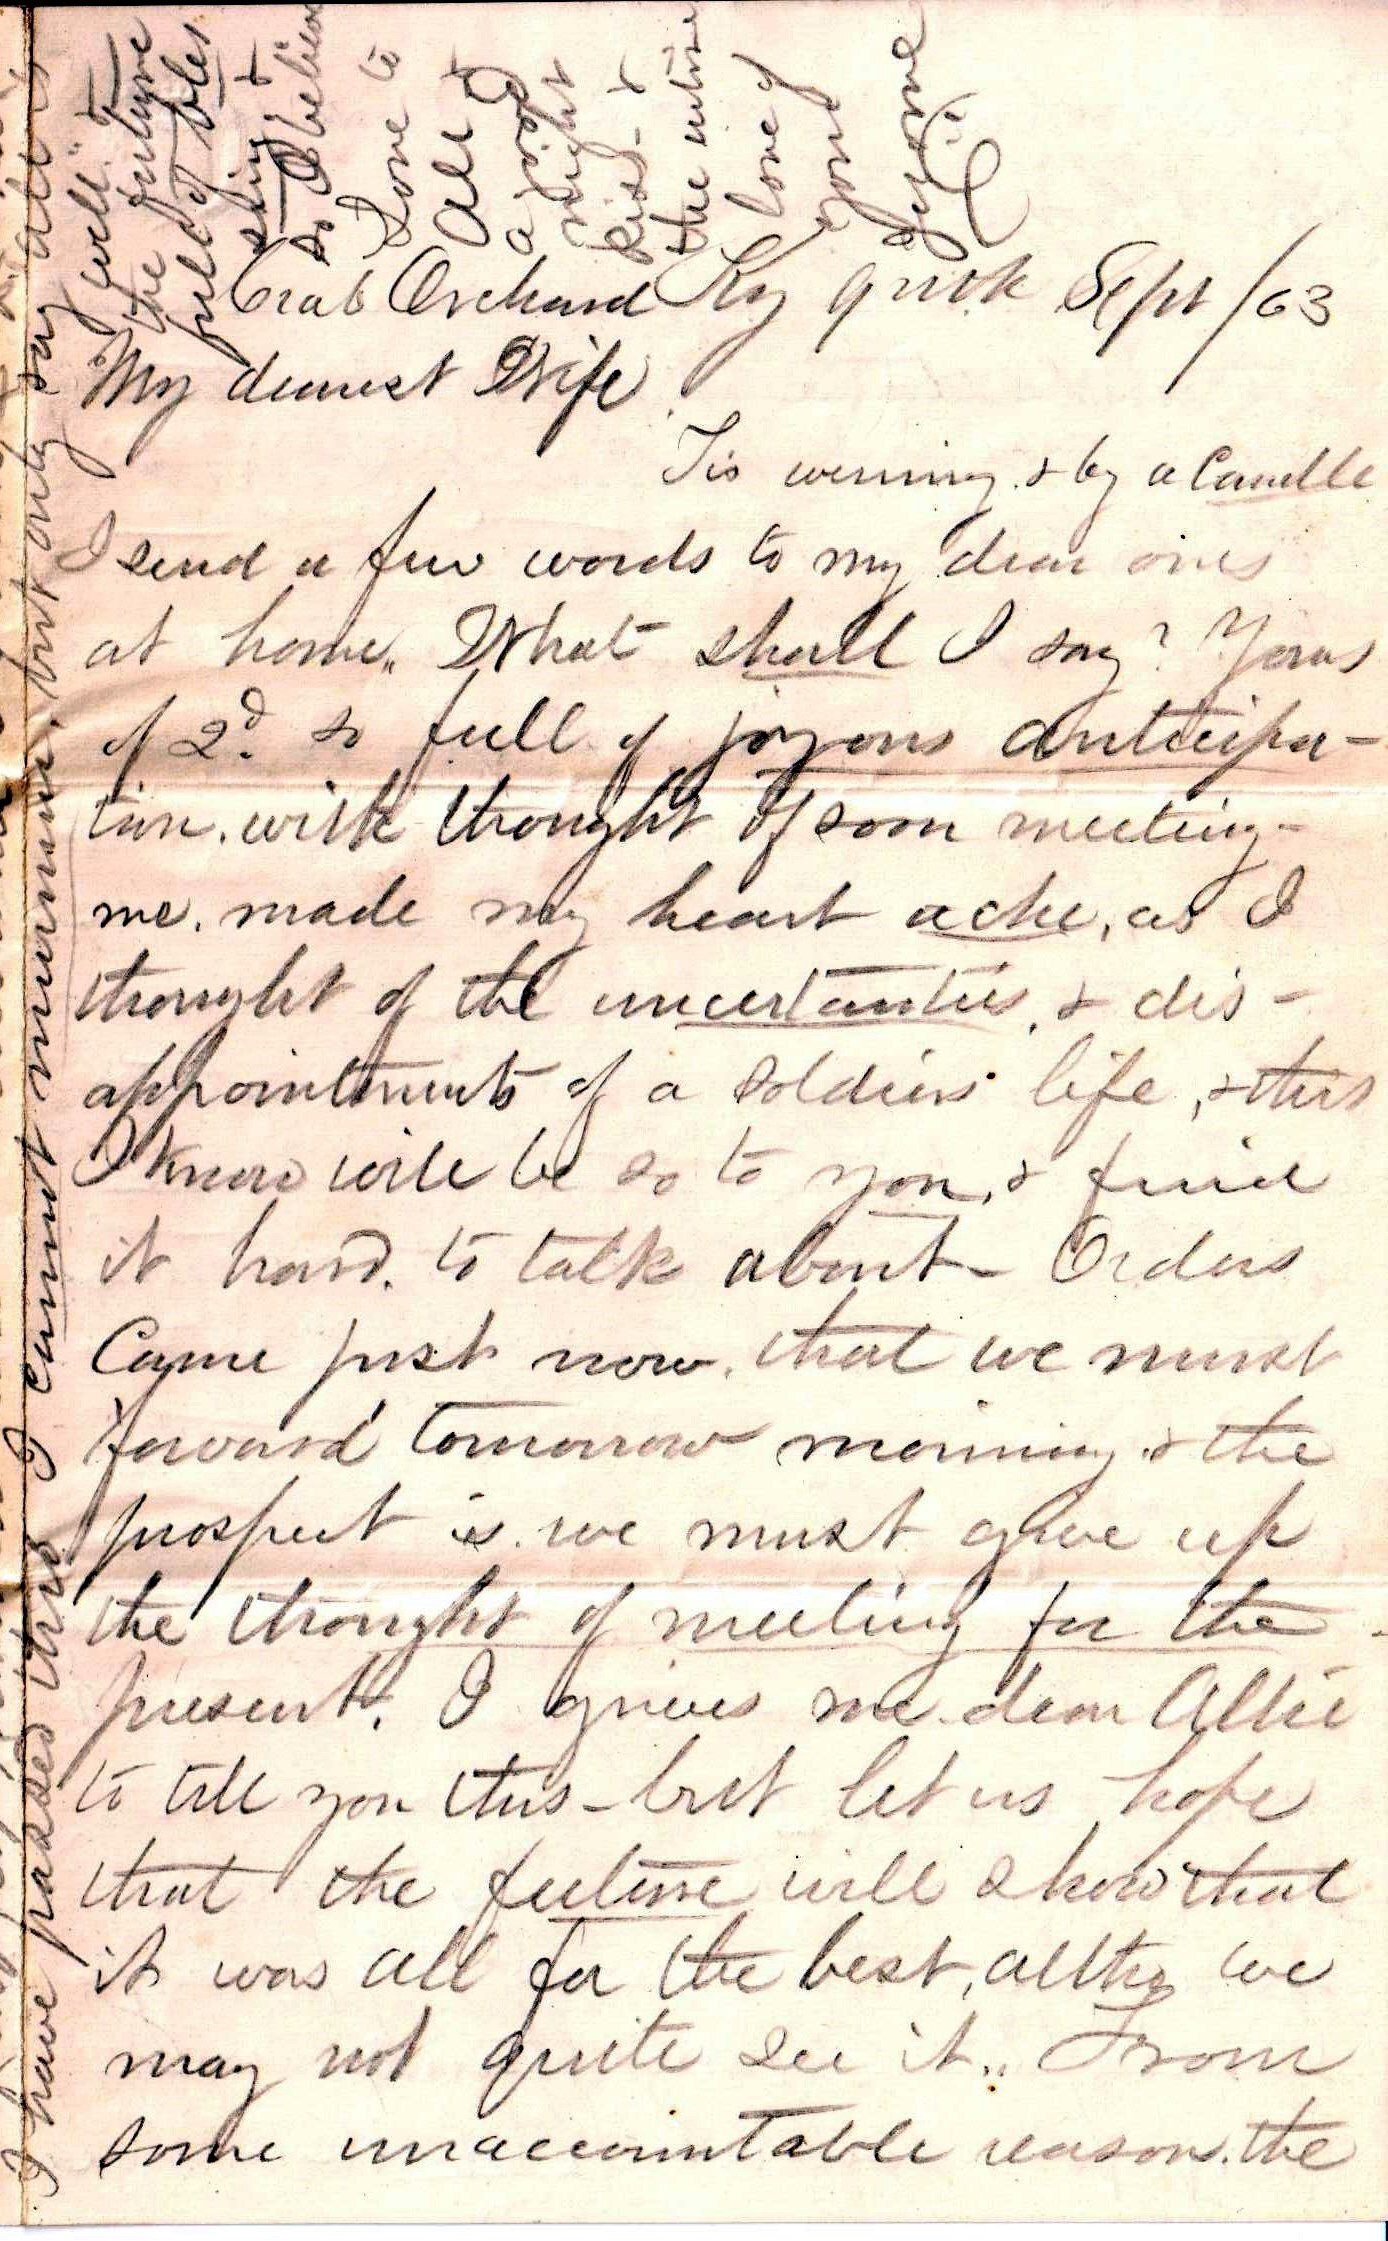 Crab Orchard Ky 9 Sept /63
My dearest Wife
Tis evening & by a Candle
I send a few words to my dear ones
at home. What shall I say? Yours
of 2d. so full of joyous anticipa-
tion. with thought of soon meeting-
me. made my heart ache, as I
thought of the uncertanties, & dis-
appointments of a soldiers life, & this
I know will be so to you, & find
it hard. to talk about- Orders
Came just now. that we must
forward tomorrow morning & the
prospect is. we must give up
the thought of meeting for the
present. I grieves me dear Allie
to tell you this- but let us hope
that the future will show that
it was all for the best, altho we
may not quite see it.. From
some unaccountable reason. the
I have passed this I cannot murmur, but only say all is
well. To
the future
full of bles
sing &
so I believe
Love to
All &
a good
night
kiss- &
the entire
love of
your
Jerome